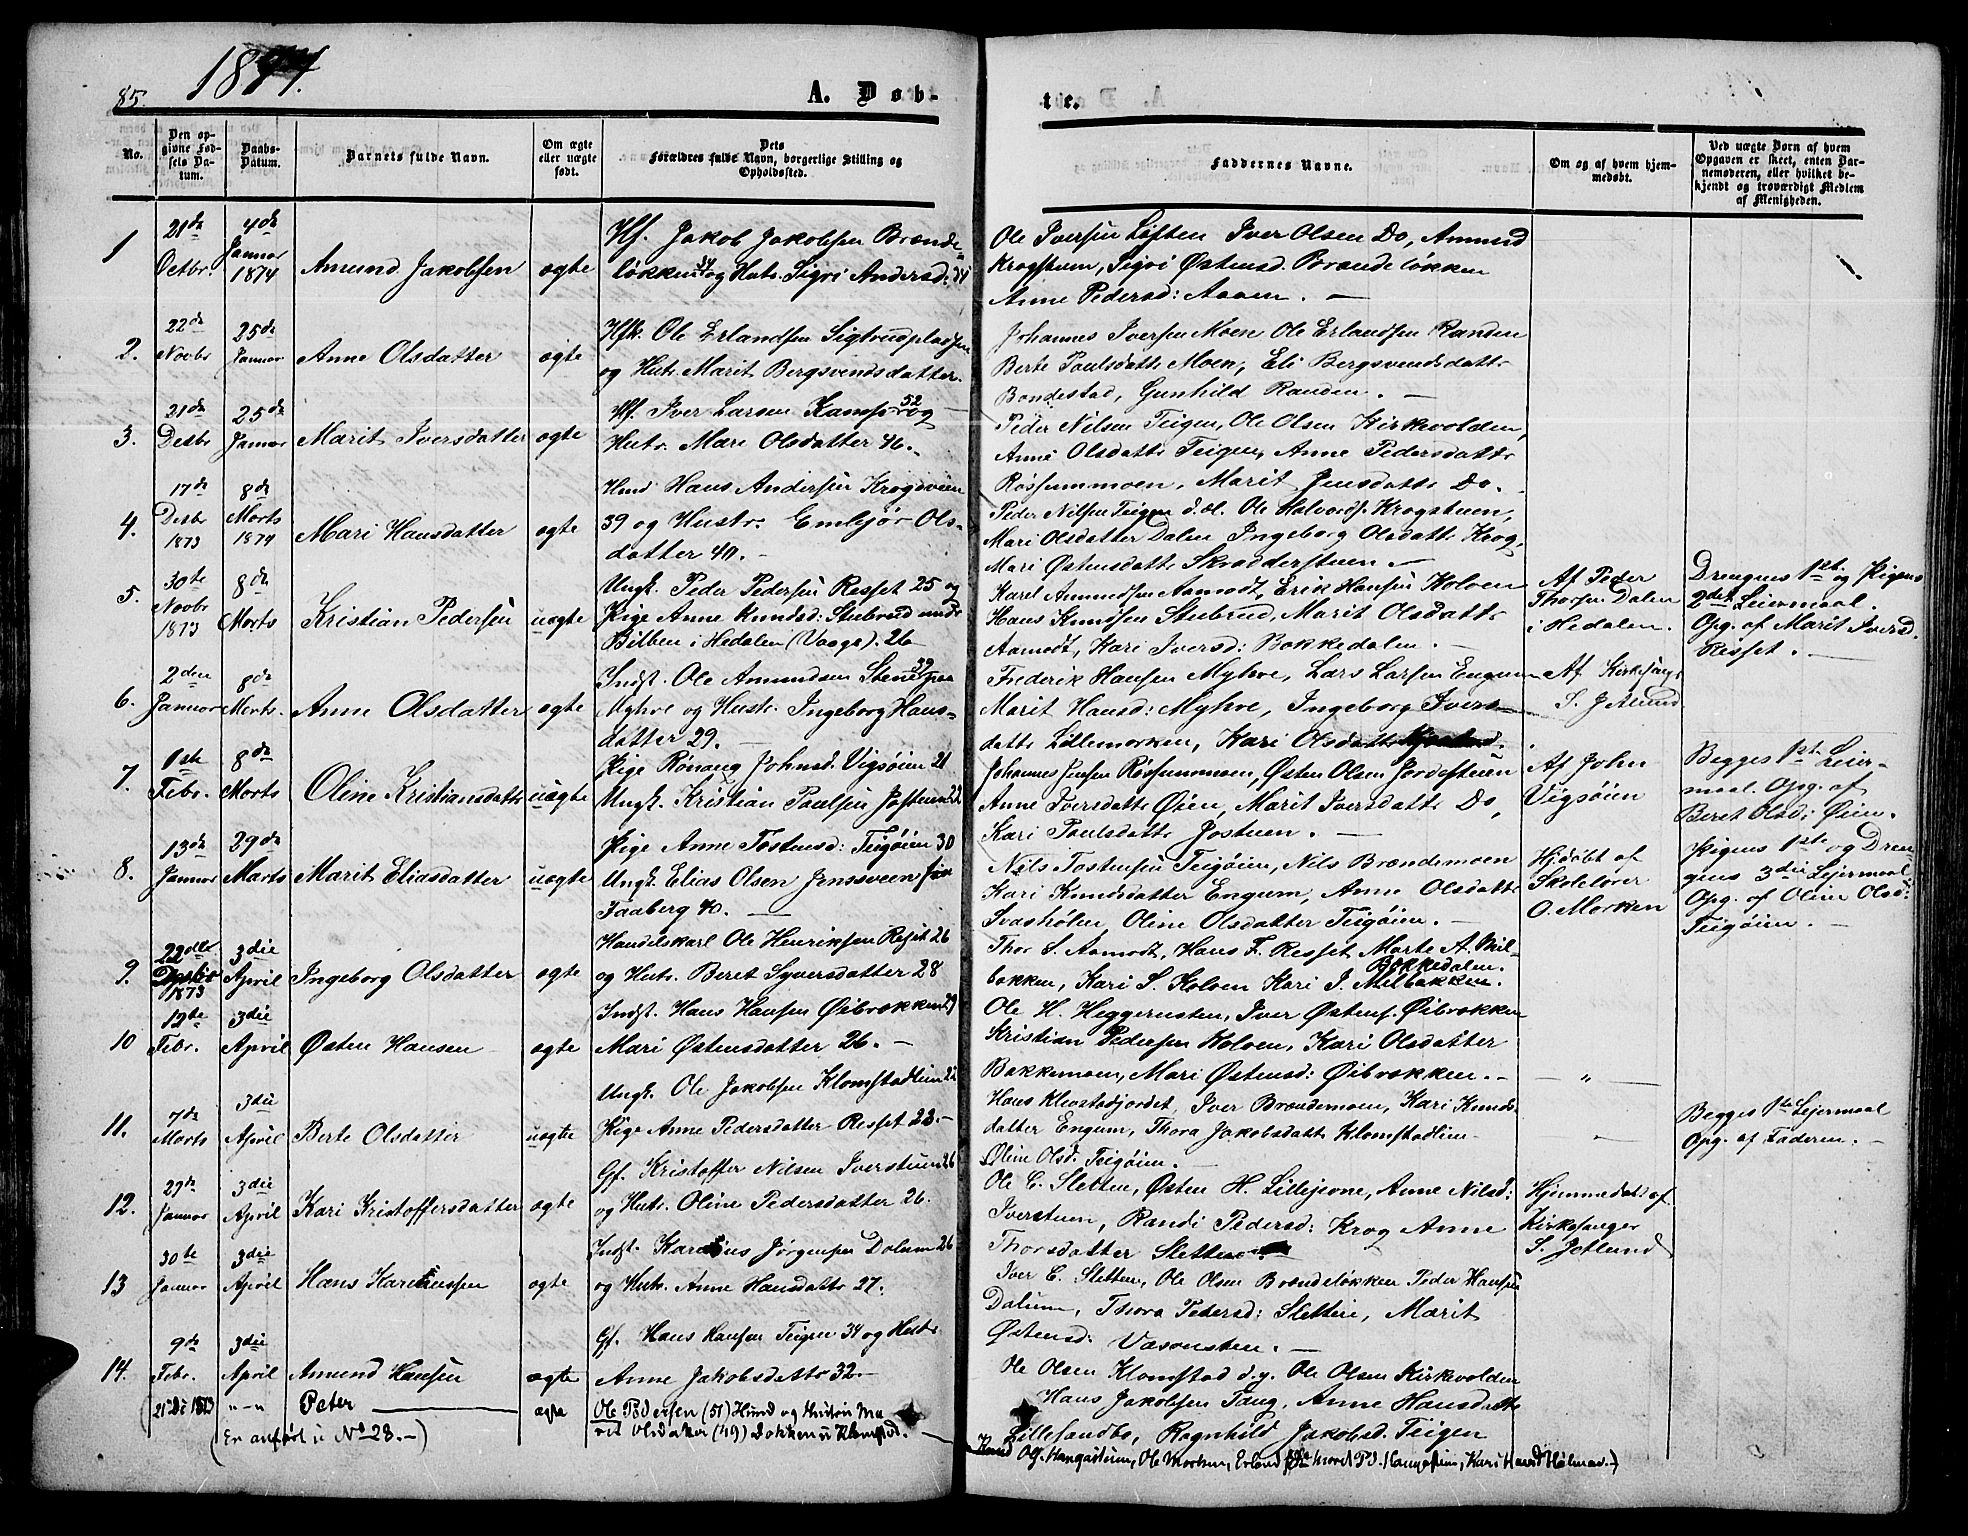 85.
1874.
A. Døb-
te.
No.
Den op-
givne Fød-
sels Da-
tum.
Daabs-
Datum.
Barnets fulde Navn.
Om ægte
eller uægte
født.
Dets
Forældres fulde Navn, borgerlige Stilling og
Opholdssted.
Faddernes Navne.
Om og af hvem hjem-
medøbt.
Ved uægte Børn af hvem
Opgaven er skeet, enten Bar-
nemoderen, eller hvilket be-
kjendt og troværdigt Medlem
af Menigheden.
1
21de
Octbr.
4de
Januar
1874
Amund Jakobsen
ægte
Hf. Jakob Jakobsen Brænde-
løkken 34 og Hutr. Sigri Andersd.
Ole Iversen Løften Iver Olsen Do, Amund
Krogstuen, Sigri Østensd. Brændeløkken
Anne Pedersd: Aaven. —
2.
22de
Novbr
25de
Januar
Anne Olsdatter
ægte
Hfk. Ole Erlandsen Sigtrudpladsen
og Hutr. Marit Bergsvendsdatter.
Johannes Iversen Moen Ole Erlandsen Randen
Berte Paulsdattr Moen, Eli Bergsvendsdattr
Bondestad, Gunhild Randen. —
3.
21de
Desbr
25de
Januar
Marit Iversdatter
ægte
Hf. Iver Larsen Kamp 52 og
Hutr. Mari Olsdatter 46.
Peder Nilsen Teigen, Ole Olsen Kirkevolden,
Anne Olsdattr Teigen, Anne Pedersdattr
Røssummoen, Marit Jensdattr Do.
4.
17de
Desbr
1873
8de
Marts
1874
Mari Hansdatter
ægte
Hmd Hans Andersen Krogsveen
39 og Hustr. Embjør Ols-
datter 40. —
Peder Nilsen Teigen d.æl. Ole Halvords. Krogstuen,
Mari Olsdatter Dalen Ingeborg Olsdattr Krog,
Mari Østensdattr Skrædderstuen —
5.
30te
Novbr
1873
8de
Marts
Kristian Pedersen
uægte
Ungk. Peder Pedersen Resset 25 og
Pige Anne Knudsd: Stubrud under
Bilben i Hedalen (Vaage). 26
Karel Amundsen Aamodt, Erik Hansen Holven
Hans Knudsen Stubrud, Marit Olsdattr
Aamodt, Kari Iversd: Bakkedalen. —
Af Peder
Thorsen Dalen
i Hedalen.
Drengens 1ste og Pigens
2det Leiermaal.
Opg. af Marit Iversd.
Resset. —
6.
2den
Januar
8de
Marts.
Anne Olsdatter
ægte
Indst. Ole Amundsen Stene 39 paa
Myhre og Hustr. Ingeborg Hans-
datter 29. —
Frederik Hansen Myhre, Lars Larsen Engum
Marit Hansd: Myhre, Ingeborg Ivers-
dattr Lillemorken, Kari Olsdattr
Af Kirkesanger
S. Jetlund
7.
1ste
Febr.
8de
Marts
Oline Kristiansdattr
uægte
Pige Rønaug Johnsd. Vigsøien 21
Ungk. Kristian Paulsen Jostuen 22
Johannes Jensen Røssummoen, Østen Olsen Jordestuen
Anne Iversdattr Øien, Marit Iversdattr Do,
Kari Paulsdattr Jostuen. —
Af John
Vigsøien
Begges 1ste Leier-
maal. Opg. af
Beret Olsd: Øien.
8.
13de
Januar
29de
Marts
Marit Eliasdatter
uægte
Pige Anne Tostensd: Teigøien 30
Ungk. Elias Olsen Jenssveen fra
Faaberg 40. —
Nils Tostensen Teigøien, Nils Brændemoen
Kari Knudsdatter Engum, Anne Olsdattr
Svashølen, Oline Olsdatter Teigøien. —
Hjdøbt af
Skolelærer
O. Morken
Pigens 1ste og Dren-
gens 3die Leiermaal
Opg. af Oline Olsd:
Teigøien. —
9.
22de
1873
3die
April
Ingeborg Olsdatter
ægte
Handelskarl Ole Henriksen Resset 26
og Hutr. Beret Syversdatter 28
Thor S. Aamodt, Hans F. Resset Marte A. Mel-
bakken, Kari S. Holven Kari I. Bakkedalen.
10
12te
Febr.
3die
April
Østen Hansen
ægte
Indst. Hans Hansen Øibrækken 29
Mari Østensdatter 26. —
Ole H. Heggerusten, Iver Østens. Øibrækken
Kristian Pedersen Holven, Kari Olsdatter
Bakkemoen, Mari Østensd: Øibrækken. —
— „ —
11.
7de
Marts
3die
April
Berte Olsdatter
uægte
Ungk. Ole Jakobsen Klomstadlien 22
Pige Anne Pedersdatter Resset 22. —
Hans Klevstadjordet, Iver Brændemoen, Kari Knuds-
datter Engum, Thora Jakobsdattr Klomstadlien
Oline Olsd. Teigøien. —
Begges 1ste Leiermaal
Opg. af Faderen. —
12.
27de
Januar
3die
April
Kari Kristoffersdatter
ægte
Gf. Kristoffer Nilsen Iverstuen 26
og Hutr. Oline Pedersdatter 26.
Ole E. Sletten, Østen H. Lillejevne, Anne Nilsd:
Iverstuen, Randi Pedersd: Krog Anne
Thorsdatter Sletten
Hjemmedøbt af
Kirkesanger
S. Jetlund
13
30te
Januar
3die
April
Hans Kareliussen
ægte
Indst. Karelius Jørgensen Dalum 26
og Hutr. Anne Hansdattr 27.
Iver E. Sletten, Ole Olsen Brændeløkken Peder Hansen
Dalum, Thora Pedersd: Sletten, Marit
Østensd: Vasrusten. —
14.
9de
Febr.
3die
April
Amund Hansen
ægte
Gf. Hans Hansen Teigen 34 og Hustr.
Anne Jakobsdattr 32. —
Ole Olsen Klomstad d.y. Ole Olsen Kirkevolden
Hans Jakobsen Taug, Anne Hansdattr
Lillesandbo, Ragnhild Jakobsd. Teigen
(21 De 1873
„ - „
Peter
ægte
Ole Pedersen (51) Hmd og Hustru Ma-
rit Olsdatter (49) Bakken u Klomstad. —
(Er anført u No 28. —)
Knud Ols. Haugastuen, Ole Morken, Erland